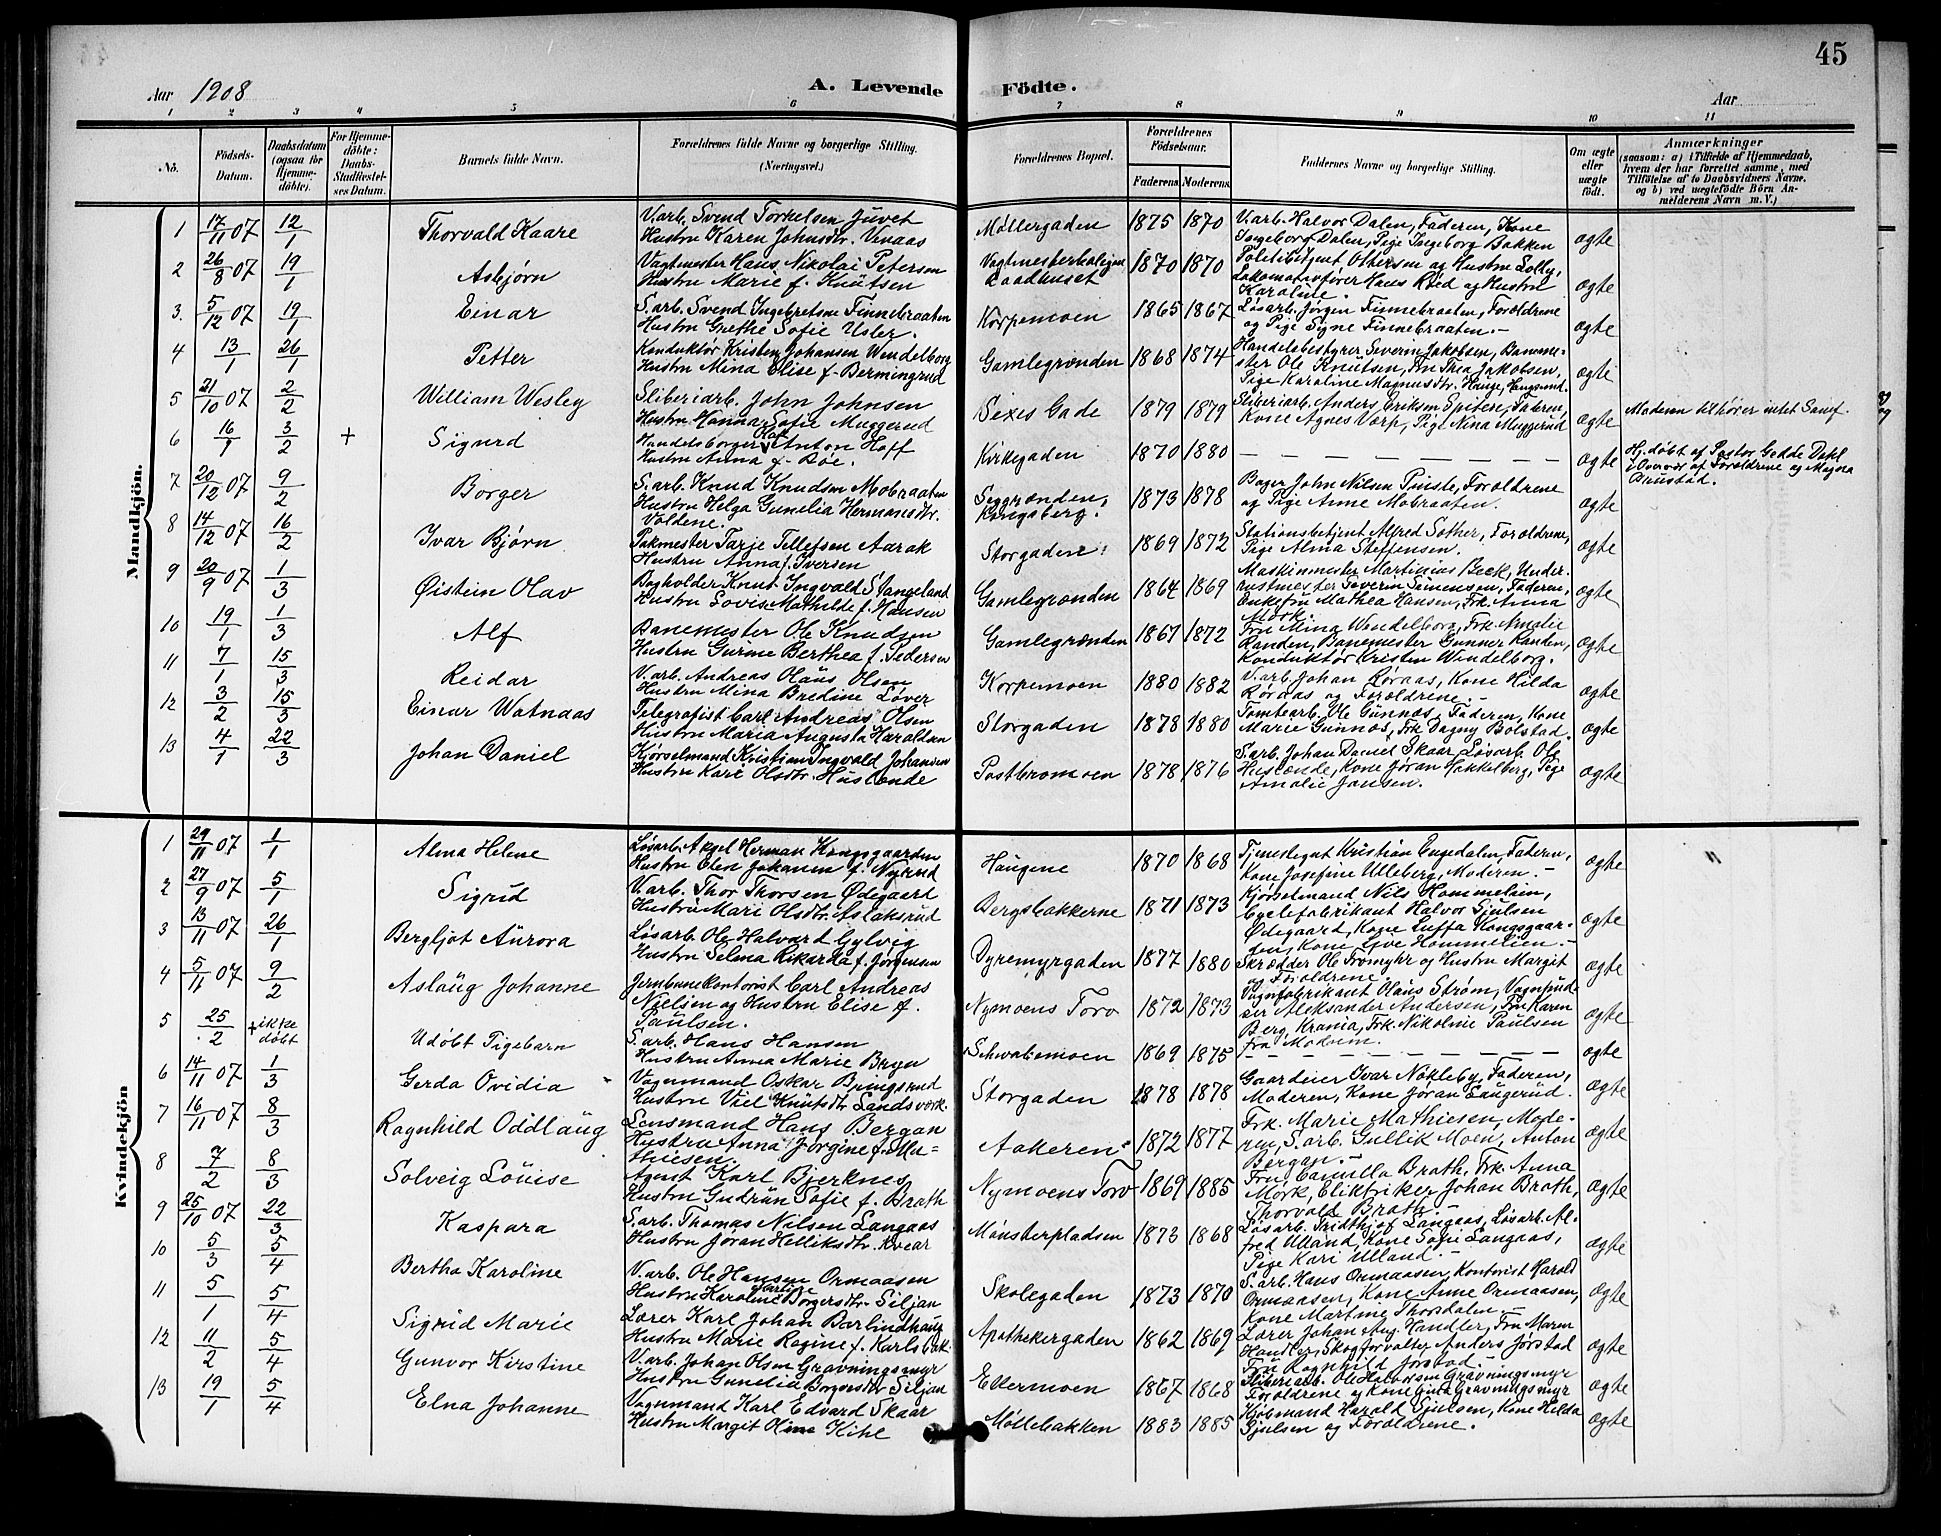 45
Aar 1908
A. Levende Födte.
Aar
1 2 3 4 5 6 7 8 9 10 11
No.
Födsels-Datum.
Daabsdatum (ogsaa for Hjemme-döbte).
For Hjemme-döbte: Daabs-Stadfæstel-ses Datum.
Barnets fulde Navn.
Forældrenes fulde Navne og borgerlige Stilling. (Næringsvei.)
Forældrenes Bopæl.
Forældrenes Födselsaar.
Faderens. Moderens.
Faddernes Navne og borgerlige Stilling.
Om ægte eller uægte födt.
Anmærkninger
(saasom: a) i Tilfælde af Hjemmedaab,
hvem der har forrettet samme, med
Tilföielse af to Daabsvidners Navne.
og b) ved uægtefödte Börn An-
melderens Navn m. V.)
Mandkjön.
1 17/11 07 12/1 Thorvald Kaare
V.arb. Svend Torkelsen Juvet
Hustru Karen Johnsdtr. Vinaas
Møllergaden 1875 1870
V.arb. Halvor Dalen, Faderen, Kone
Ingeborg Dalen, Pige Ingeborg Bakken
ægte
2 26/8 07 19/1 Asbjørn
Vagtmester Hans Nikolai Petersen
Hustru Marie f. Knutsen
Vagtmesterboligen
Raadhuset 1870 1870
Politibetjent Othersen og Hustru Lolly,
Lokomotivfører Hans Röed og Hustru
Karoline.
ægte
3. 5/12 07 19/1 Einar
S.arb. Svend Ingebretsen Finnebraaten
Hustru Grethe Sofie Usler
Korpemoen 1865 1867
Løsarb. Jørgen Finnebraaten, Forældrene
og Pige Signe Finnebraaten.-
ægte
4 13/1 26/1 Petter
Konduktör Kristen Johansen Wendelborg
Hustru Mina Elise f. Bermingrud
Gamlegrønden 1868 1874
Handelsbestyrer Severin Jakobsen, Baneme-
ster Ole Knutsen, Fru Thea Jakobsen,
Pige Karoline Magnusdtr. Hauge, Haugsund.
ægte
5 21/10 07 2/2 William Wesley
Sliberiarb. John Johnsen
Hustru Hanna Sofie Muggerud
Sexes Gade 1879 1879
Sliberiarb. Anders Eriksen, Faderen,
Kone Agnes Vorp, Pige Nina Muggerud
ægte
Moderen tilhører intet Samf.
6 16/1 3/2 + Sigurd
Handelsborger Olaf Anton Hoff
Hustru Anna f. Böe.
Kirkegaden 1870 1880
— — — — — — — —
ægte
Hj. döbt af Pastor Gedde Dahl
i Overvær af Forældrene og Magna
Buustad.
7 20/12 07 9/2 Borger
S.arb. Knud Knudsen Mobraaten
Hustru Helga Gunelia Hermansdtr.
Voldene.
Seggrænden,
Kongsberg. 1873 1878
Bager John Nilsen Pruste, Forældrene
og Pige Anne Mobraaten.
ægte
8 14/12 07 16/2 Ivar Bjørn
Pakmester Tarje Tellefsen Aarak
Hustru Anna f. Iversen
Storgaden 1869 1872
Stationsbetjent Alfred Söther, Forældrene,
Pige Alma Steffensen.
ægte
9 20/9 07 1/3 Øistein Olav
Bogholder Knut Ingvald Stangeland
Hustru Lovise Mathilde f. Hansen
Gamlegrønden 1864 1869
Maskinmester Martinius Beck, Under-
rustmester Severin Simensen, Faderen,
Enkefru Mathea Hansen, Frk. Anna
Mörk.
ægte
10 19/1 1/3 Alf
Banemester Ole Knudsen
Hustru Gurine Berthea f. Pedersen
Gamlegrønden 1867 1872
Fru Mina Wendelborg, Frk. Amalie
Randen, Banemester Gunner Randen,
Konduktör Kristen Windelborg.
ægte
11 7/1 15/3 Reidar
V.arb. Andreas Olaus Olsen
Hustru Mina Bredine Løver
Korpemoen 1880 1882
V.arb. Johan Røraas, Kone Hilda
Røraas og Forældrene.-
ægte
12 3/2 15/3 Einar Watnaas
Telegrafist Carl Andreas Olsen
Hustru Maria Augusta Haraldsen
Storgaden 1878 1880
Tomtearb. Ole Gunnæs, Faderen, Kone
Marie Gunnæs, Frk Dagny Bolstad.
ægte
13 4/1 22/3 Johan Daniel
Kjørselmand Kristian Ingvald Johansen
Hustru Kari Olsdtr. Huslænde
Postbromoen 1878 1876
S.arb. Johan Daniel Skaar, Løsarb. Ole
Huslænde, Kone Jøran Hakkelberg, Pige
Amalie Jansen.
ægte
Kvindekjön
1 29/11 07 1/1 Alma Helene
Løsarb. Aksel Herman Kongsgaarden
Hustru Elen Johanne f. Nyerud
Haugene 1870 1868
Tjenestegut Kristian Engedalen, Faderen,
Kone Josefine Ulleberg, Moderen.-
ægte
2 27/9 07 5/1 Sigrid
V.arb. Thor Thorsen Ødegaard
Hustru Mari Olsdtr. Aslaksrud
Bergsbakkerne 1871 1873
Kjørselmand Nils Hommelien,
Cyclefabrikant Halvor Gjulsen
Ødegaard, Kone Luffa Kongsgaar-
den, Kone Live Hommelien.-
ægte
3 13/11 07 26/1 Bergljot Aurora
Løsarb. Ole Halvard Gylvig
Hustru Selma Rikarda f. Jørgensen
Dyremyrgaden 1877 1880
Skrædder Ole Tromyhr og Hustru Margit
og Forældrene.
ægte
4 5/11 07 9/2 Aslaug Johanne
Jernbanekontorist Carl Andreas
Nielsen og Hustru Elise f.
Paulsen.
Nymoens Torv 1872 1873
Vognfabrikant Olaus Strøm, Vognfund-
er Aleksander Andersen, Fru Karen
Berg, Krania, Frk. Nikoline Paulsen
fra Modum.
ægte
5 25/2 + ikke döbt Udöbt Pigebarn
S.arb. Hans Hansen
Hustru Anna Marie Bryn
Schwabemoen 1869 1875
— — — — — — — —
ægte
6 14/11 07 1/3 Gerda Ovidia
Vognmand Oskar Bingsrud
Hustru Viel Knutsdtr. Landsværk.
Storgaden 1878 1878
Gaardeier Ivar Nökleby, Faderen,
Moderen, Kone Jøran Laugerud.
ægte
7 16/11 07 8/3 Ragnhild Oddlaug
Lensmand Hans Bergan
Hustru Anna Jörgine f. Ma-
thiesen.
Aakeren 1872 1877
Frk. Marie Mathiesen, Mode-
ren, S.arb. Gullik Moen, Anton
Bergan.-
ægte
8 7/2 8/3 Solveig Louise
Agent Karl Bjerknes
Hustru Gudrun Sofie f. Brath
Nymoens Torv 1869 1885
Fru Camilla Brath, Frk. Anna
Mörk, Eliktriker Johan Brath,
Thorvald Brath.-
ægte
9 25/10 07 22/3 Kaspara
S.arb. Thomas Nilsen Langaas
Hustru Jøran Helliksdtr. Kvear
Mønsterpladsen 1873 1868
Løsarb. Fridthjof Langaas, Løsarb. Al-
fred Ulland, Kone Sofie Langaas,
Pige Kari Ulland.-
ægte
10 5/3 5/4 Bertha Karoline
V.arb. Ole Hansen Ormaasen
Hustru Karoline Borgersdtr. Siljan
Skolegaden 1873 1870
S.arb. Hans Ormaasen, Kontorist Harold
Ormaasen, Kone Anne Ormaasen,
Kone Martine Thorsdalen.-
ægte
11 5/1 5/4 Sigrid Marie
Lærer Karl Johan Barlindhaug
Hustru Marie Regine f. Karlsbak.
Apothekergaden 1862 1869
Lærer Johan Aug. Handler, Fru Maren
Handler, Skogforvalter Anders Jørstad
Fru Ragnhild Jørstad.-
ægte
12 11/2 5/4 Gunvor Kirstine
V.arb. Johan Olsen Gravningsmyr
Hustru Gunelia Borgersdtr Siljan
Ettermoen 1867 1868
Sliberiarb. Ole Halvorsen Gravningsmyr
Forældrene og Kone Guta Gravningsmyr
ægte
13 19/1 5/4 Elna Johanne
Vognmand Karl Edvard Skaar
Hustru Margit Oline Kihl
Møllebakken 1883 1885
Kjøbmand Harald Gjulsen, Kone Helda
Gjulsen og Forældrene.
ægte